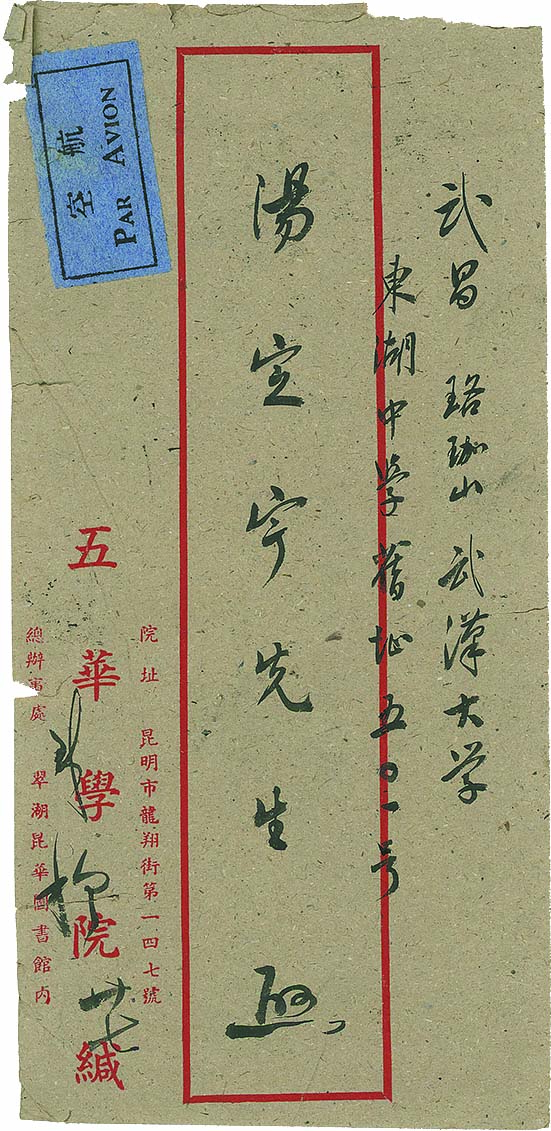 武昌 珞珈山 武漢大学
東湖中学舊址五〇一号
湯定宇先生 啟
院址 昆明市龍翔街第一四七號
五華學院緘
總辦事處 翠湖昆華圖書館內
廿七
航空
PAR AVION